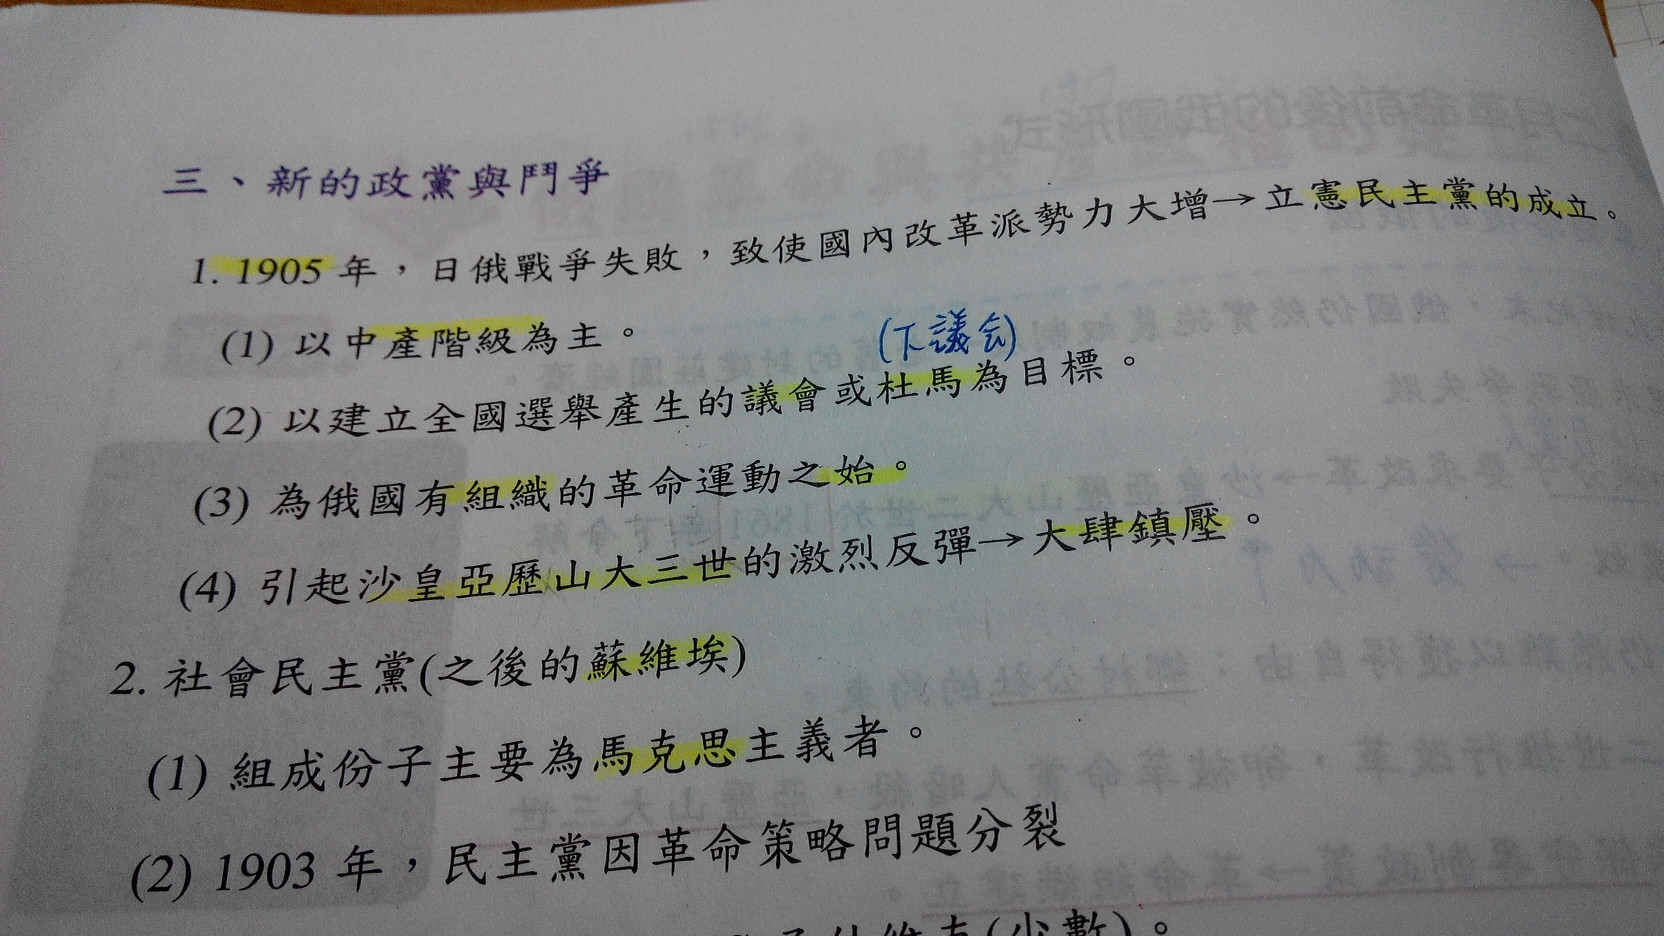 三、新的政黨與鬥爭
1. 1905 年，日俄戰爭失敗，致使國內改革派勢力大增→立憲民主黨的成立。
(1) 以中產階級為主。
(下議会)
(2) 以建立全國選舉產生的議會或杜馬為目標。
(3) 為俄國有組織的革命運動之始。
(4) 引起沙皇亞歷山大三世的激烈反彈→大肆鎮壓。
2. 社會民主黨(之後的蘇維埃)
(1) 組成份子主要為馬克思主義者。
(2) 1903 年，民主黨因革命策略問題分裂
(少數)。